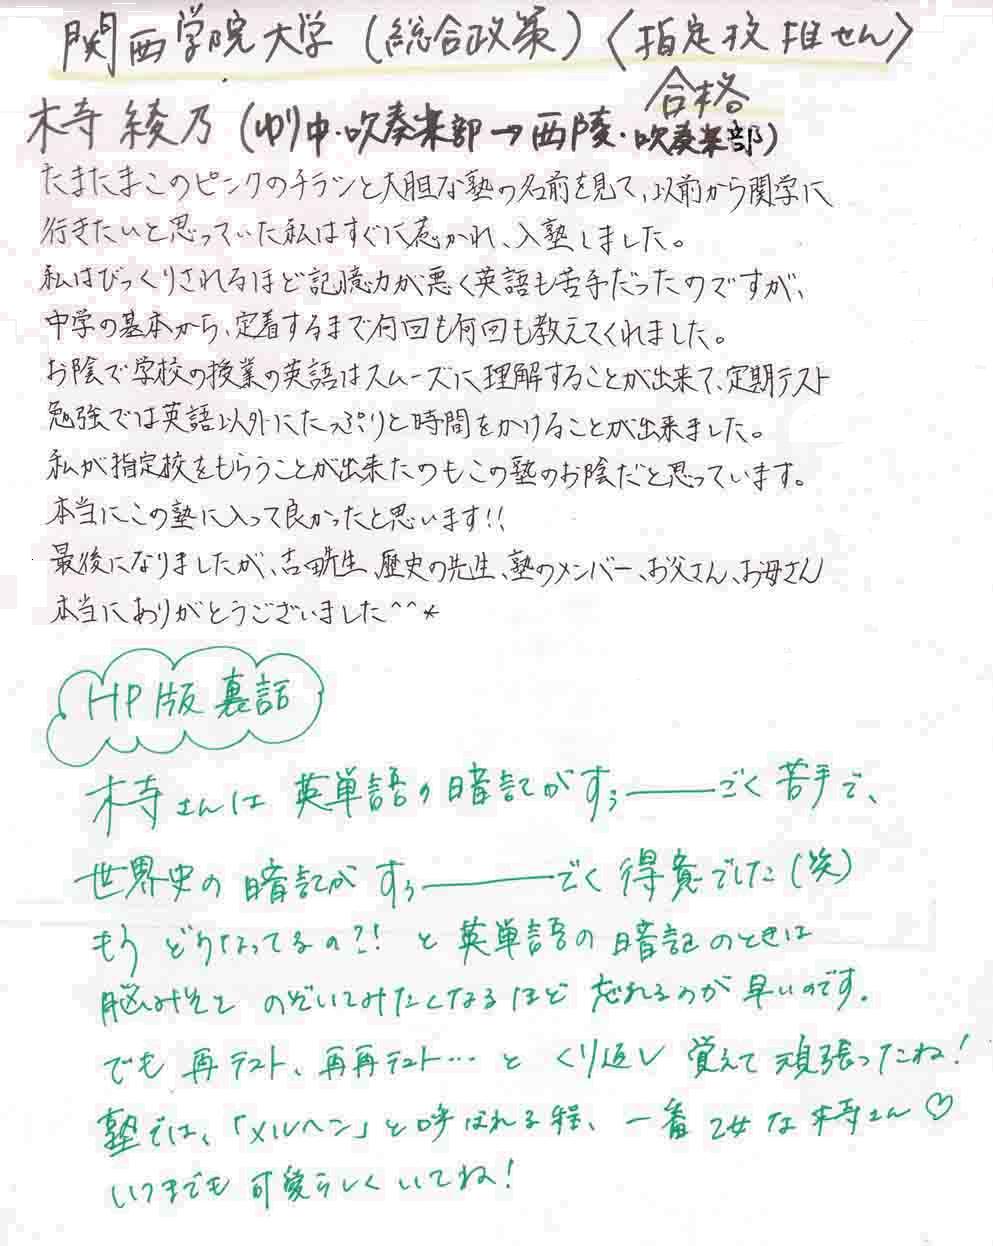 関西学院大学（総合政策）〈指定校推せん〉
合格
木寺 綾乃（ゆり中・吹奏楽部→西陵・吹奏楽部）
たまたまこのピンクのチラシと大胆な塾の名前を見て、以前から関学に
行きたいと思っていた私はすぐに惹かれ、入塾しました。
私はびっくりされるほど記憶力が悪く英語も苦手だったのですが、
中学の基本から、定着するまで何回も何回も教えてくれました。
お陰で学校の授業の英語はスムーズに理解することが出来て、定期テスト
勉強では英語以外にたっぷりと時間をかけることが出来ました。
私が指定校をもらうことが出来たのもこの塾のお陰だと思っています。
本当にこの塾に入って良かったと思います!!
最後になりましたが、吉田先生、歴史の先生、塾のメンバー、お父さん、お母さん
本当にありがとうございました^^*
HP版 裏話
木寺さんは 英単語の暗記がすぅ――ごく苦手で、
世界史の暗記が すぅ――ごく 得意でした（笑）
もう どうなってるの?! と 英単語の 暗記のときは
脳みそを のぞいてみたくなるほど 忘れるのが 早いのです。
でも 再テスト、再再テスト… と くり返し 覚えて 頑張ったね！
塾では、「メルヘン」と呼ばれる程、一番 乙女な 木寺さん♡
いつまでも 可愛らしくいてね！